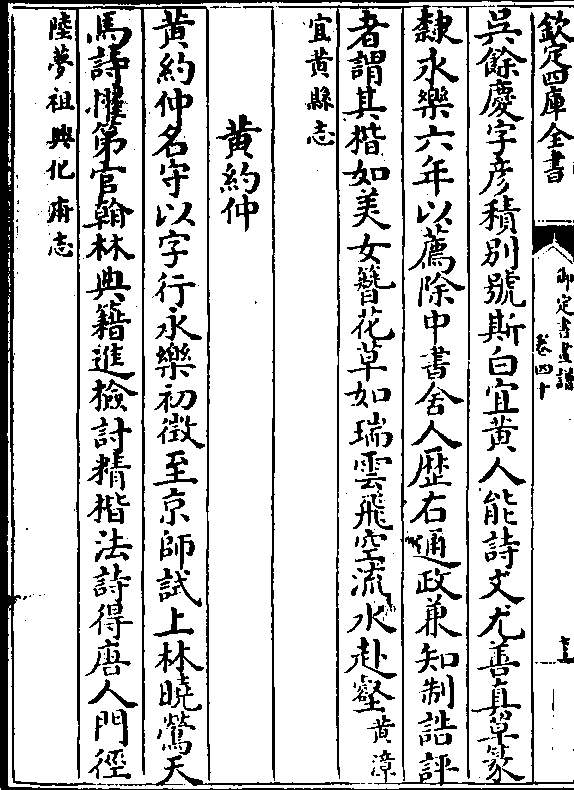 欽定四庫全書
御定書畫譜
卷四十
吳餘慶字彥積別號斯白宜黃人能詩文尤善真草篆
隸永樂六年以薦除中書舍人歷右通政兼知制誥評
者謂其楷如美女簪花草如瑞雲飛空流水赴壑黃漳
宜黃縣志
黃約仲
黃約仲名守以字行永樂初徵至京師試上林曉鶯天
馬詩擢第官翰林典籍進檢討精楷法詩得唐人門徑
陸夢祖興化府志